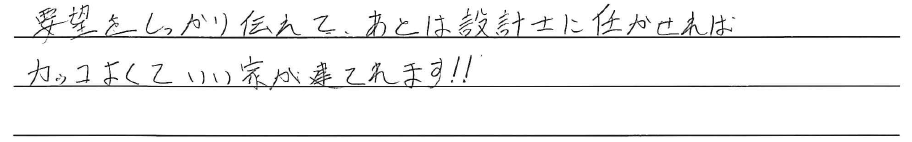 要望をしっかり伝えて、あとは設計士に任かせれば
カッコよくていい家が建てれます!!